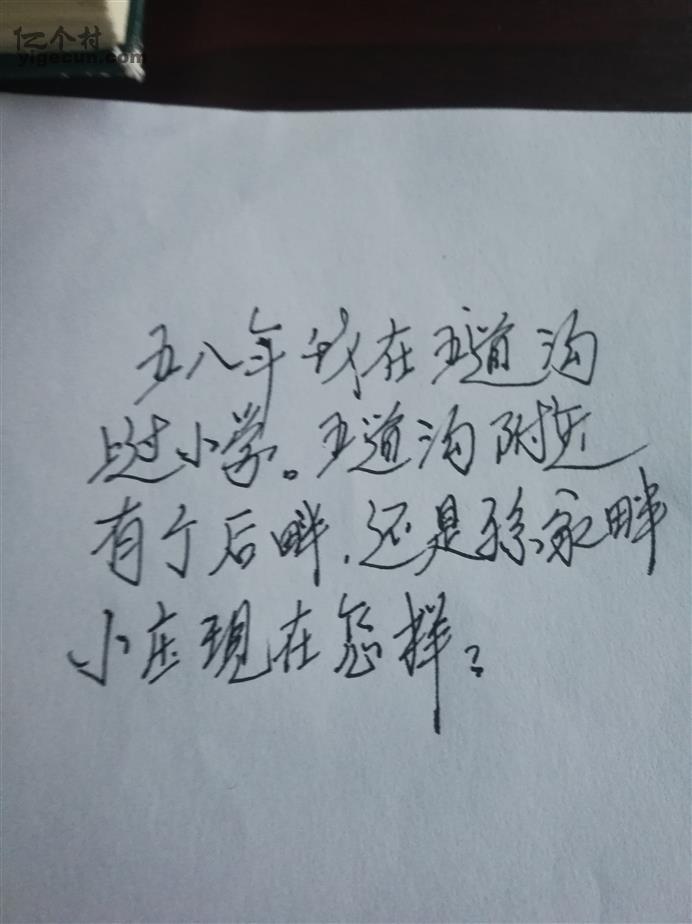 亿个村
yigecun.com
五八年我在五道沟
上过小学。五道沟附近
有个后畔，还是孙家畔
小庄现在怎样？